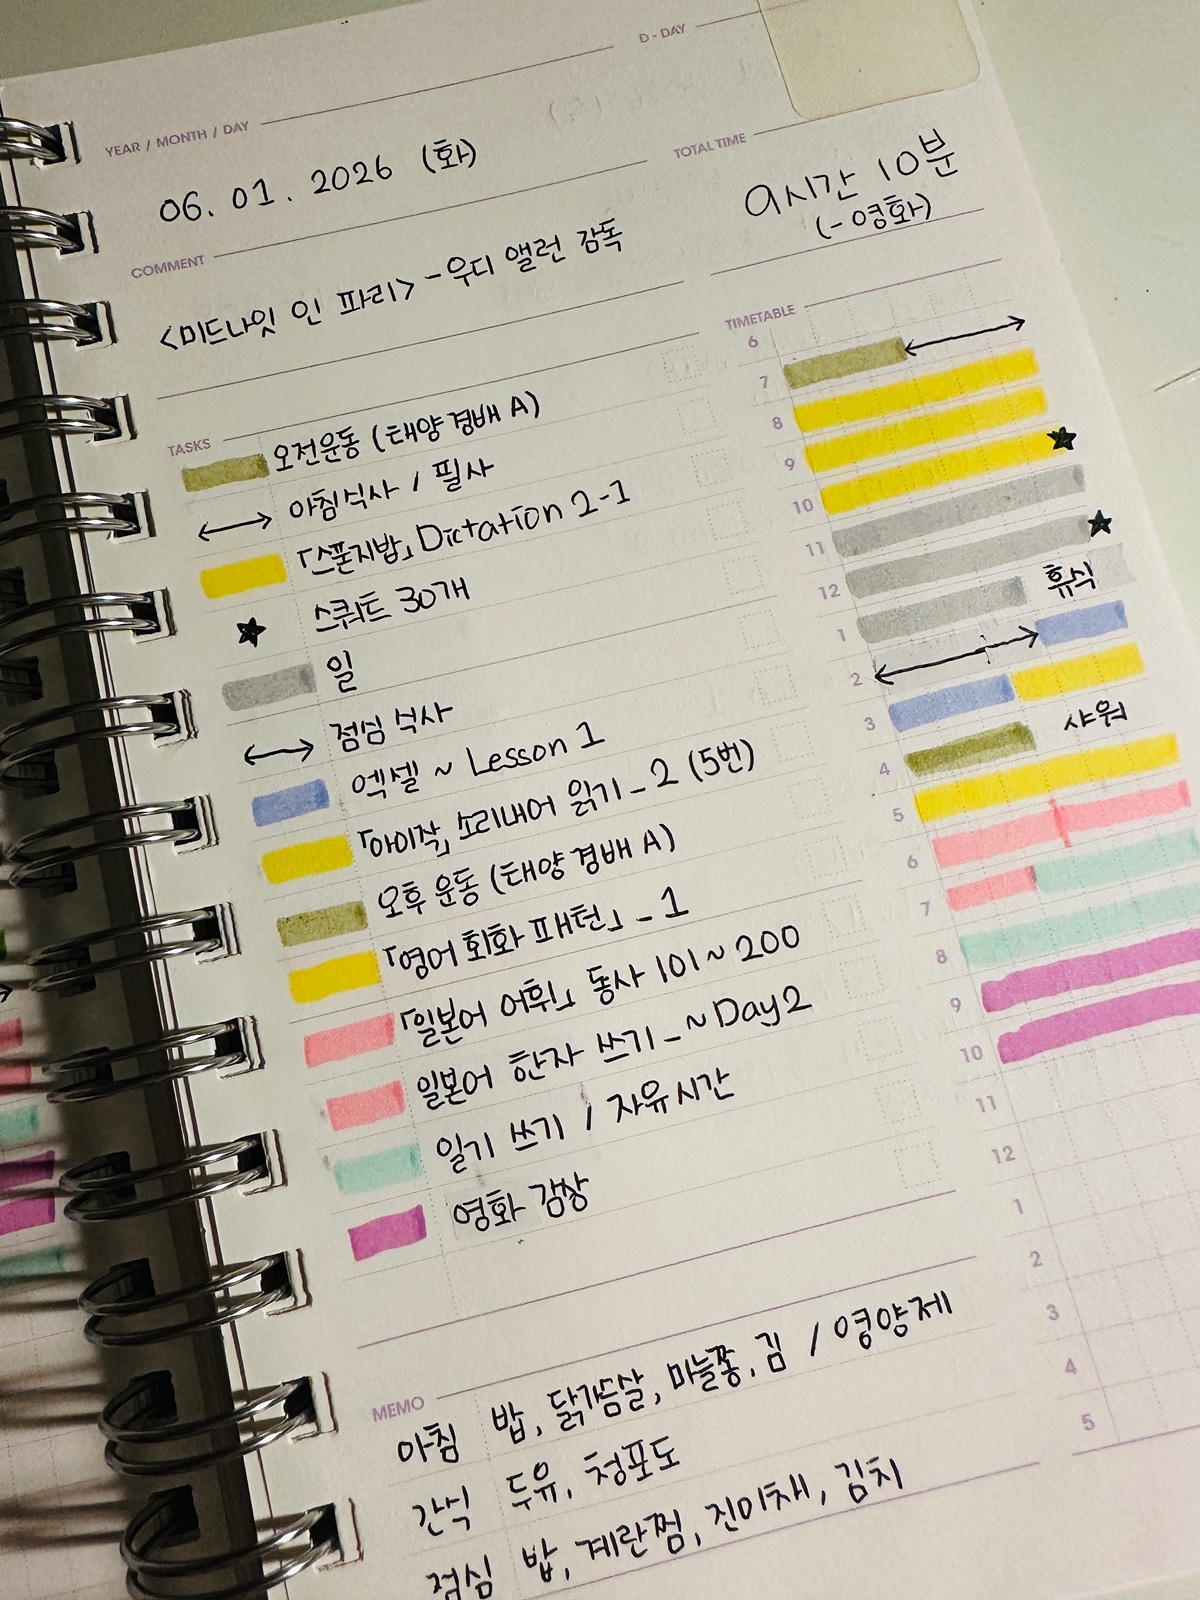 D - DAY
YEAR / MONTH / DAY
06. 01. 2026 (화)
TOTAL TIME
9시간 10분
(-영화)
COMMENT
<미드나잇 인 파리> - 우디 앨런 감독
TASKS
오전운동 (태양 경배 A)
아침식사 / 필사
「스폰지밥」 Dictation 2-1
스쿼트 30개
일
점심 식사
엑셀 ~ Lesson 1
「아이작」 소리내어 읽기 - 2 (5번)
오후 운동 (태양 경배 A)
「영어 회화 패턴」 - 1
「일본어 어휘」 동사 101 ~ 200
일본어 한자 쓰기 - ~ Day 2
일기 쓰기 / 자유시간
영화 감상
TIMETABLE
6
7
8
9
10
11
12
휴식
1
2
3
샤워
4
5
6
7
8
9
10
11
12
1
2
3
4
5
MEMO
아침 밥, 닭가슴살, 마늘쫑, 김 / 영양제
간식 두유, 청포도
점심 밥, 계란찜, 진미채, 김치